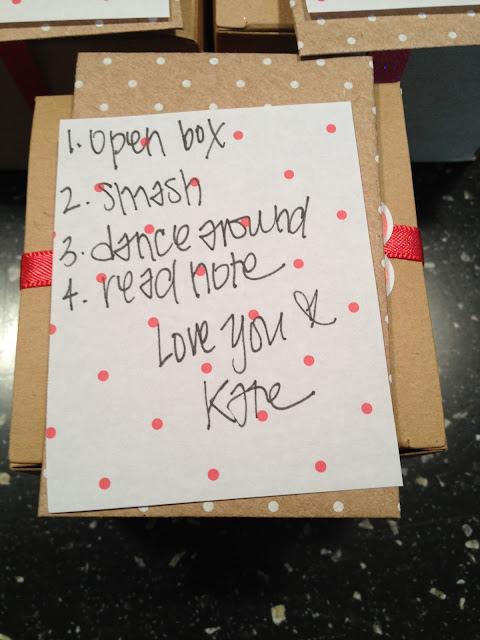 1. open box
2. smash
3. dance around
4. read note
Love you
Kate